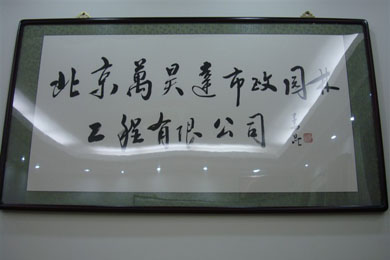 北京萬昊達市政园林
工程有限公司